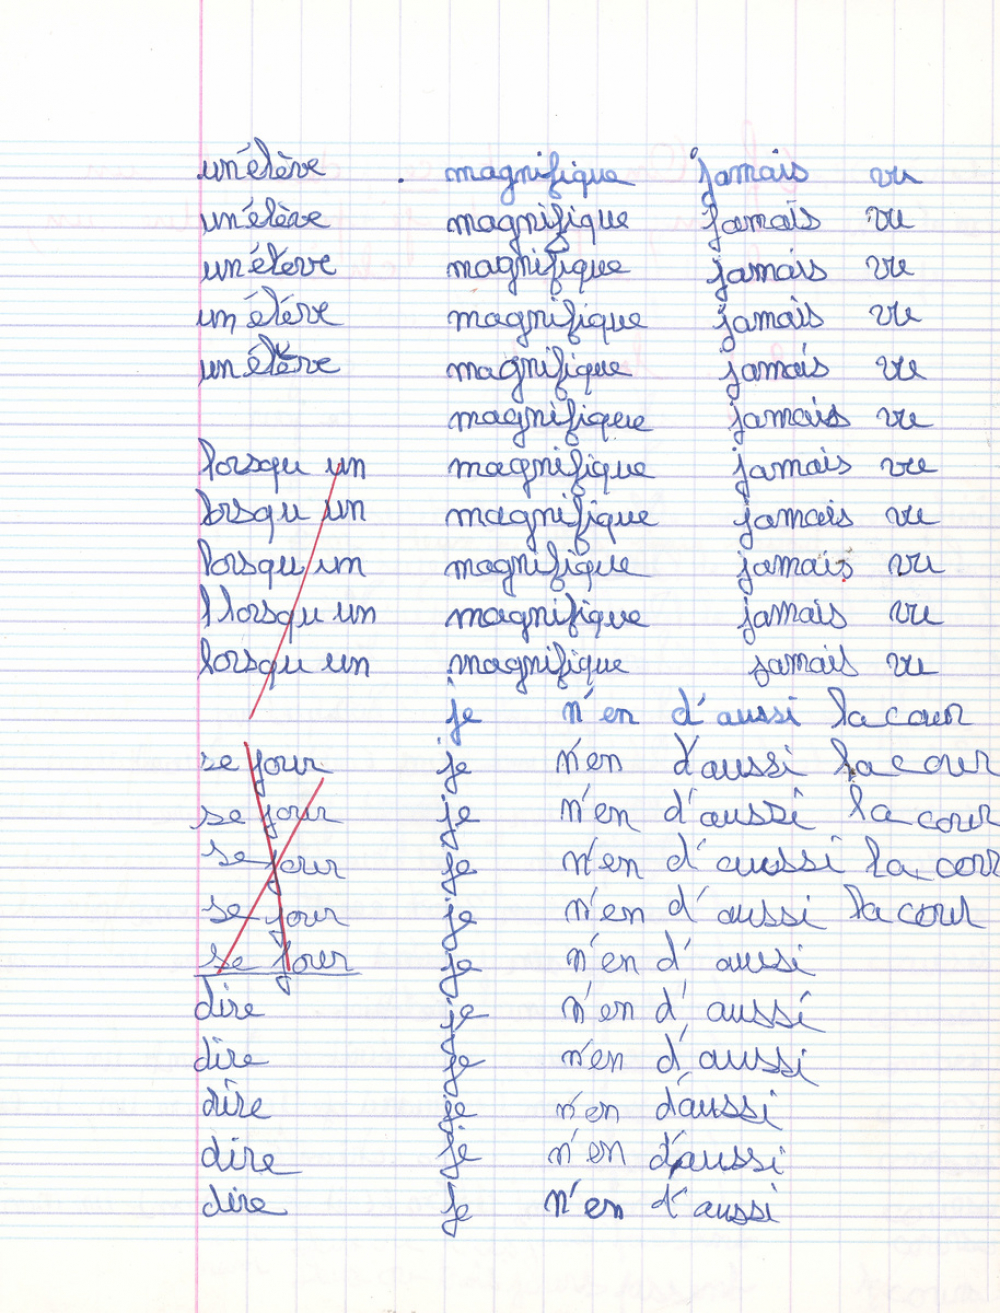 un élève . magnifique jamais vu
un élève magnifique jamais vu
un élève magnifique jamais vu
un élève magnifique jamais vu
un élève magnifique jamais vu
magnifique jamais vu
lorsqu un magnifique jamais vu
lorsqu un magnifique jamais vu
lorsqu un magnifique jamais vu
l lorsqu un magnifique jamais vu
lorsqu un magnifique jamais vu
je n'en d'aussi la cour
se jour je n'en d'aussi la cour
se jour je n'en d'aussi la cour
se jour je n'en d'aussi la cour
se jour je n'en d'aussi la cour
se jour je n'en d'aussi
dire je n'en d'aussi
dire je n'en d'aussi
dire je n'en d'aussi
dire je n'en d'aussi
dire je n'en d'aussi